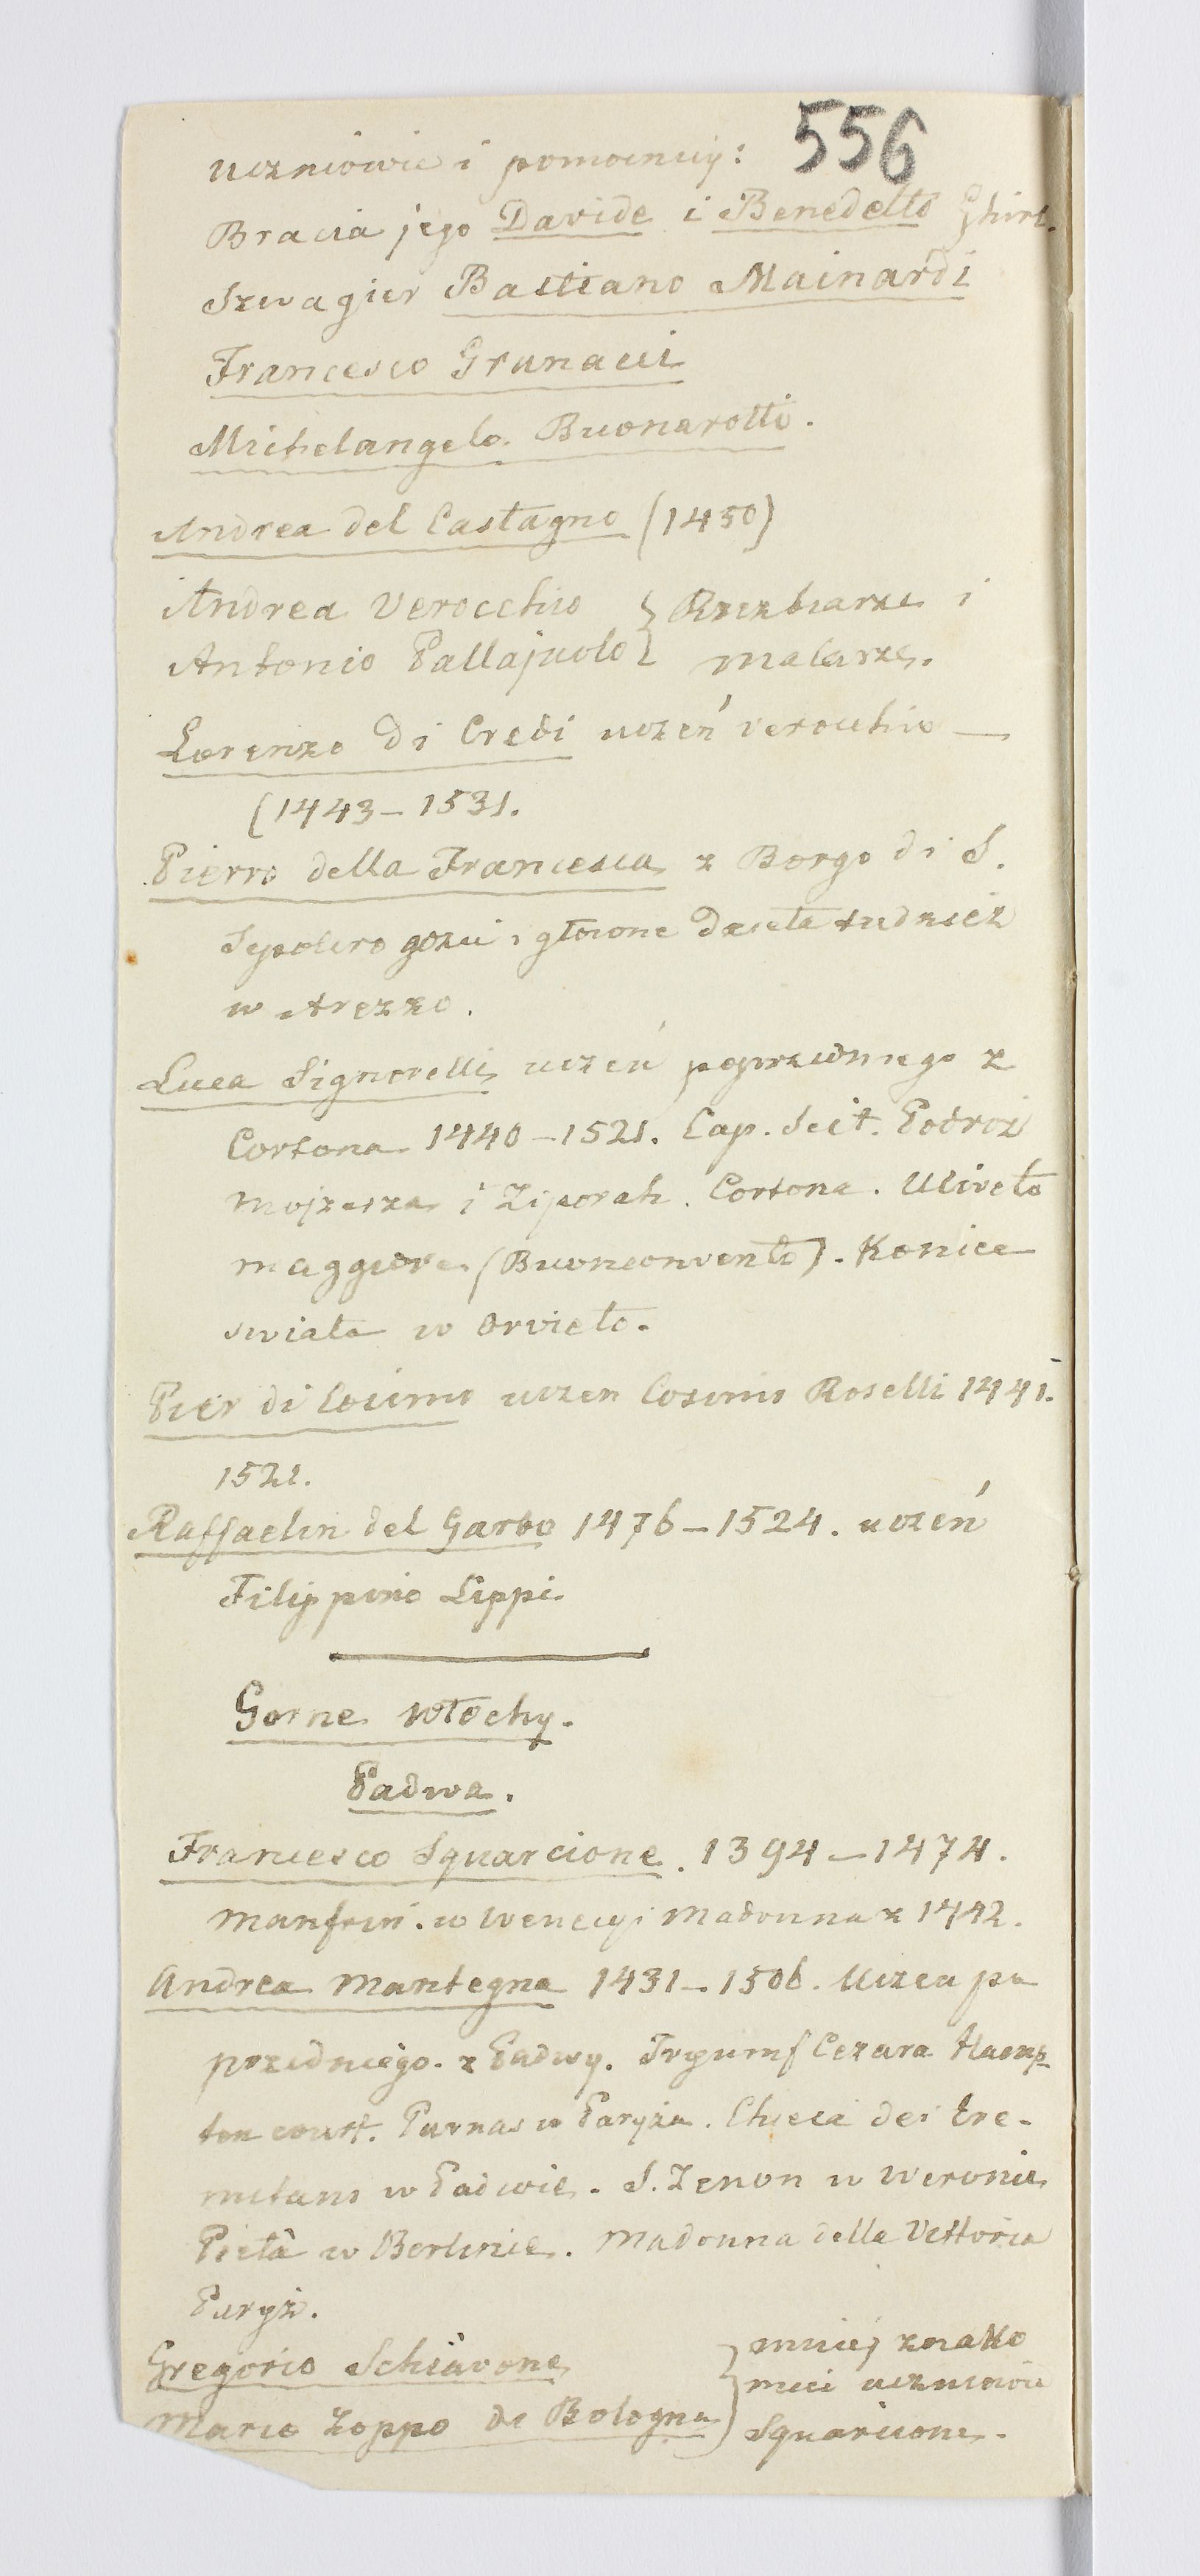 556
uczniowie i pomocnicy:
Bracia jego Davide i Benedetto Ghirl.
Szwagier Bastiano Mainardi
Francesco Granacci
Michelangelo Buonarotti.
Andrea del Castagno (1450)
Andrea Verocchio } Rzezbiarze i
Antonio Pallajuolo } malarze.
Lorenzo di Credi uczeń Verochio —
(1443–1531.
Pierro della Francesca z Borgo di S.
Sepolcro gdzie i główne dzieła tudzież
w Arezzo.
Luca Signorelli uczeń poprzedniego z
Cortona 1440–1521. Cap. Sixt. Podroż
Mojzesza i Ziporah. Cortona. Uliveto
maggiore (Buonconvento). Koniec
swiata w Orvieto.
Pier di Cosimo uczen Cosimo Roselli 1441–
1521.
Raffaelin del Garbo 1476–1524. uczeń
Filippino Lippi.
Gorne włochy.
Padwa.
Francesco Squarcione. 1394–1474.
Manfrin. w Wenecyi Madonna z 1442.
Andrea Mantegna 1431–1506. Uczen po
przedniego. z Padwy. Tryumf Cezara Hamp-
ton court. Parnas w Paryżu. Chiesa dei Ere-
mitani w Padwie. S. Zenon w Weronie
Pietà w Berlinie. Madonna della Vettoria
Paryż.
Gregorio Schiavone } mniej znako
Marco Zoppo da Bologna } mici uczniowie
Squarcione.